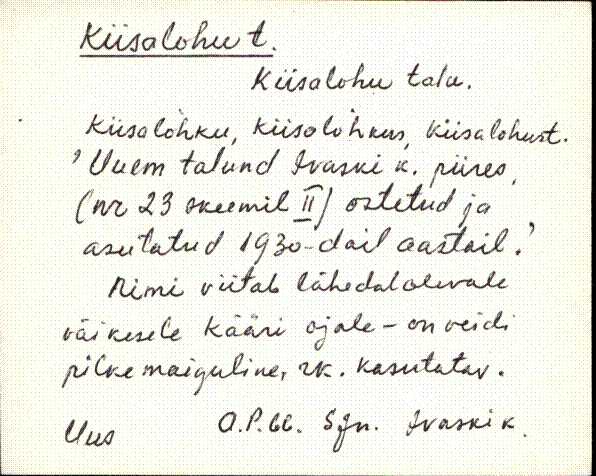 Kiisalohu t.
Kiisalohu talu.
Kiisalòhku, kiisalòhkus, kiisalohust.
'Uuem talund Ivaski k. piires,
(nr 23 skeemil II) ostetud ja
asutatud 1930-dail aastail.'
Nimi viitab lähedalolevale
väikesele Kääri ojale - on veidi
pilkemaiguline, rk. kasutatav.
Uus O.P. 66. Sjn. Ivaski k.